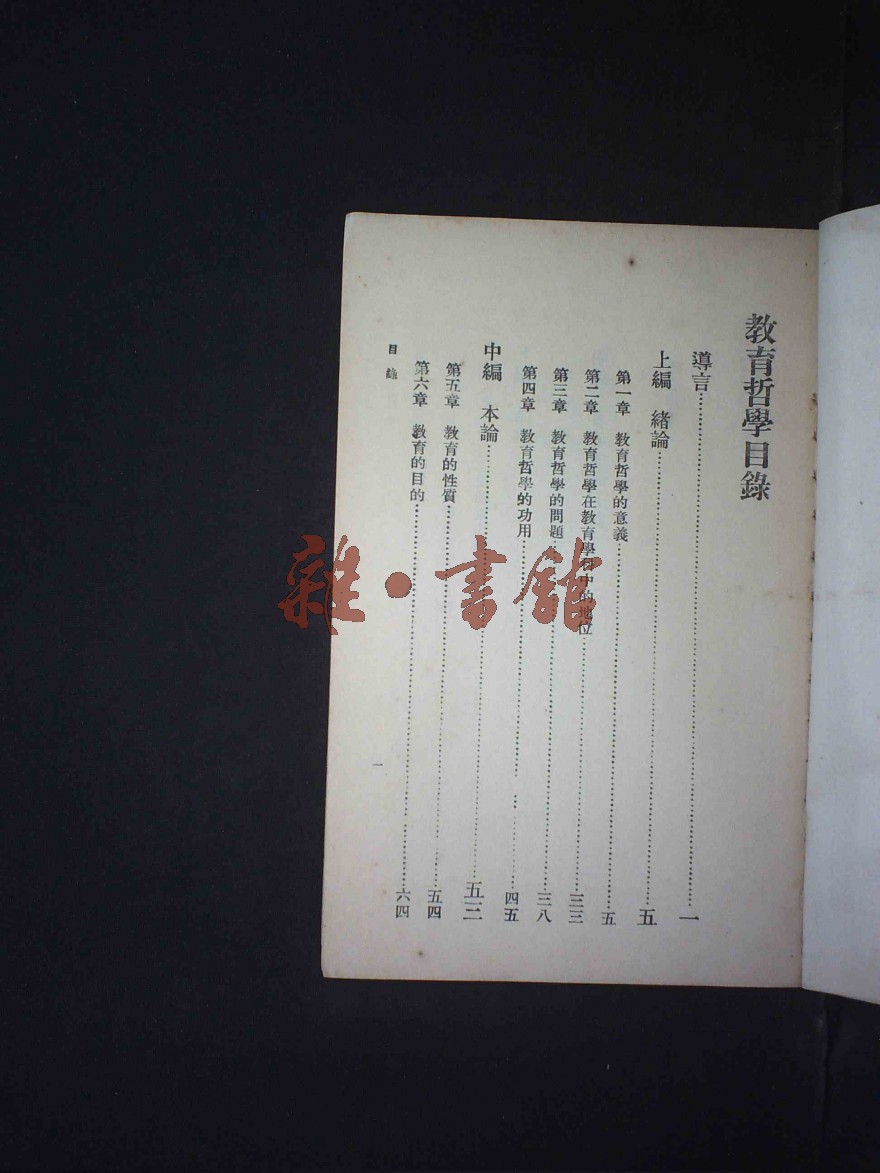 教育哲學目錄
導言……一
上編 緒論……五
第一章 教育哲學的意義……五
第二章 教育哲學在教育學科中的地位……三三
第三章 教育哲學的問題……三八
第四章 教育哲學的功用……四五
中編 本論……五三
第五章 教育的性質……五四
第六章 教育的目的……六四
目錄
一
雜·書館